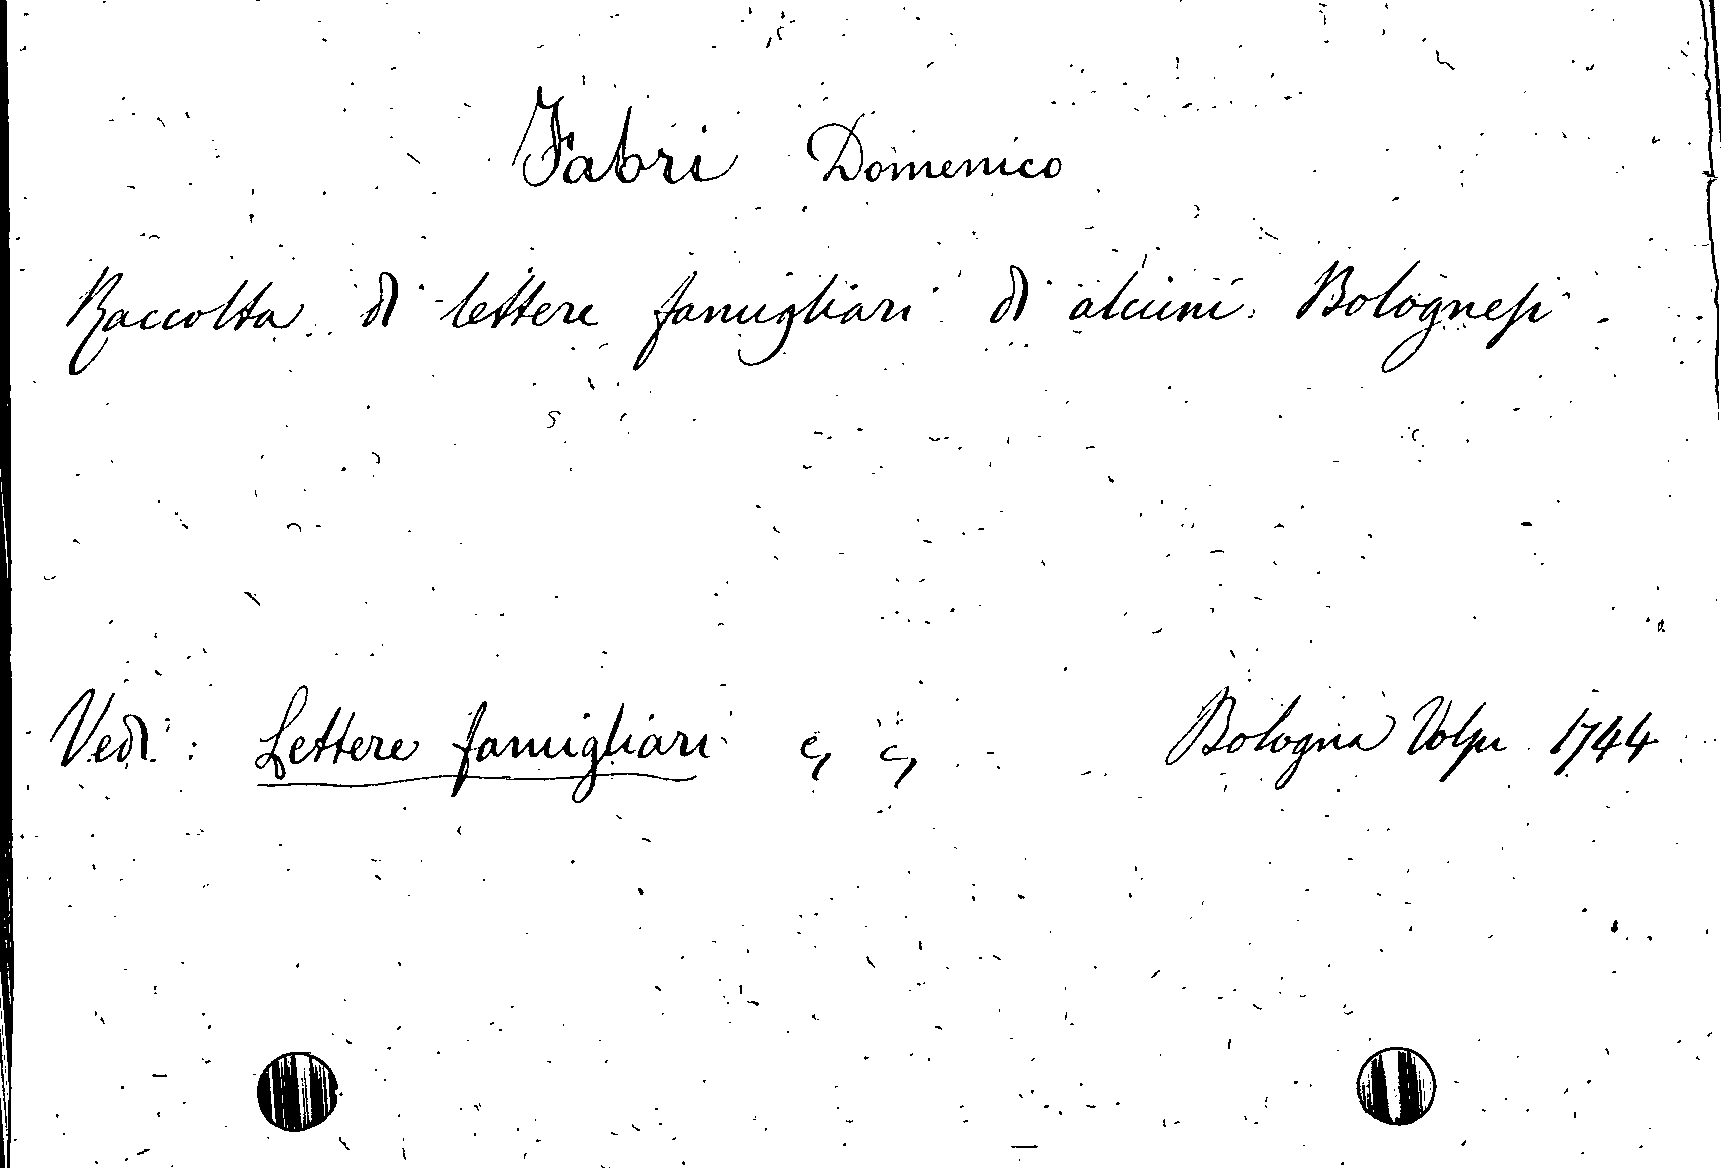 Fabri Domenico
Raccolta di lettere famigliari di alcuni Bolognesi
Vedi: Lettere famigliari „ „ Bologna Volpe 1744